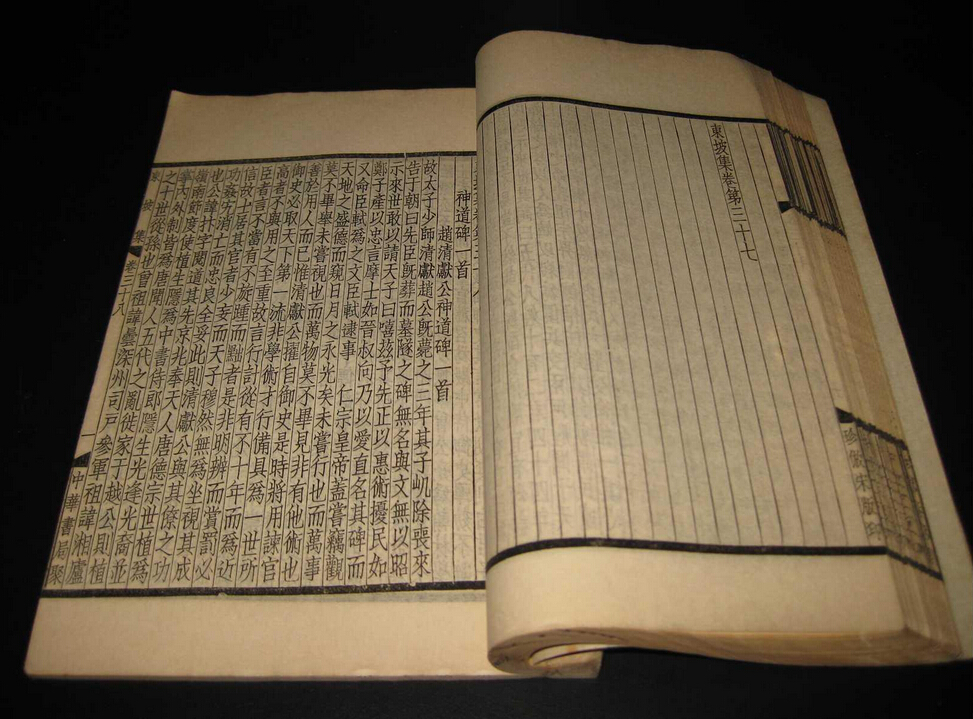 東坡集卷第三十七
珍倣宋版印
神道碑一首
趙清獻公神道碑一首
故太子少師清獻趙公既薨之三年其子屼除喪來
告于朝曰先臣既葬而墓隧之碑無名與文無以昭
示來世敢以請天子曰嘻茲予先正以惠術擾民如
鄭子產以忠言摩士如晉叔向乃以愛直名其碑而
又命臣軾為之文臣軾逮事 仁宗皇帝蓋嘗竊觀
天地之盛德而窺日月之永光矣未嘗行也而萬事
莫不畢舉未嘗視也而萬物莫不畢見非有他術也
善於用人而已惟清獻公擢自御史是時將用諫官
御史必取天下第一流非學術才行備具為一世所
高者不與用之至重故言行計從有不十年而為近
臣者言不當有不旋踵而黜者是非明辨而賞罰必
信故士居其官者少妄而天子穆然無為坐視其成
功姦宄消亡而忠良全安此則清獻公與其僚之功
也公諱抃字閱道其先京兆奉天人唐德宗世植為
嶺南節度使植生隱為中書侍郎隱生光逢光裔並
掌內外制皆為唐聞人五代之亂徙家于越公則植
之十世從孫也曾祖諱曇深州司戶參軍祖諱湘廬
東坡集 卷三十八 一 中華書局聚